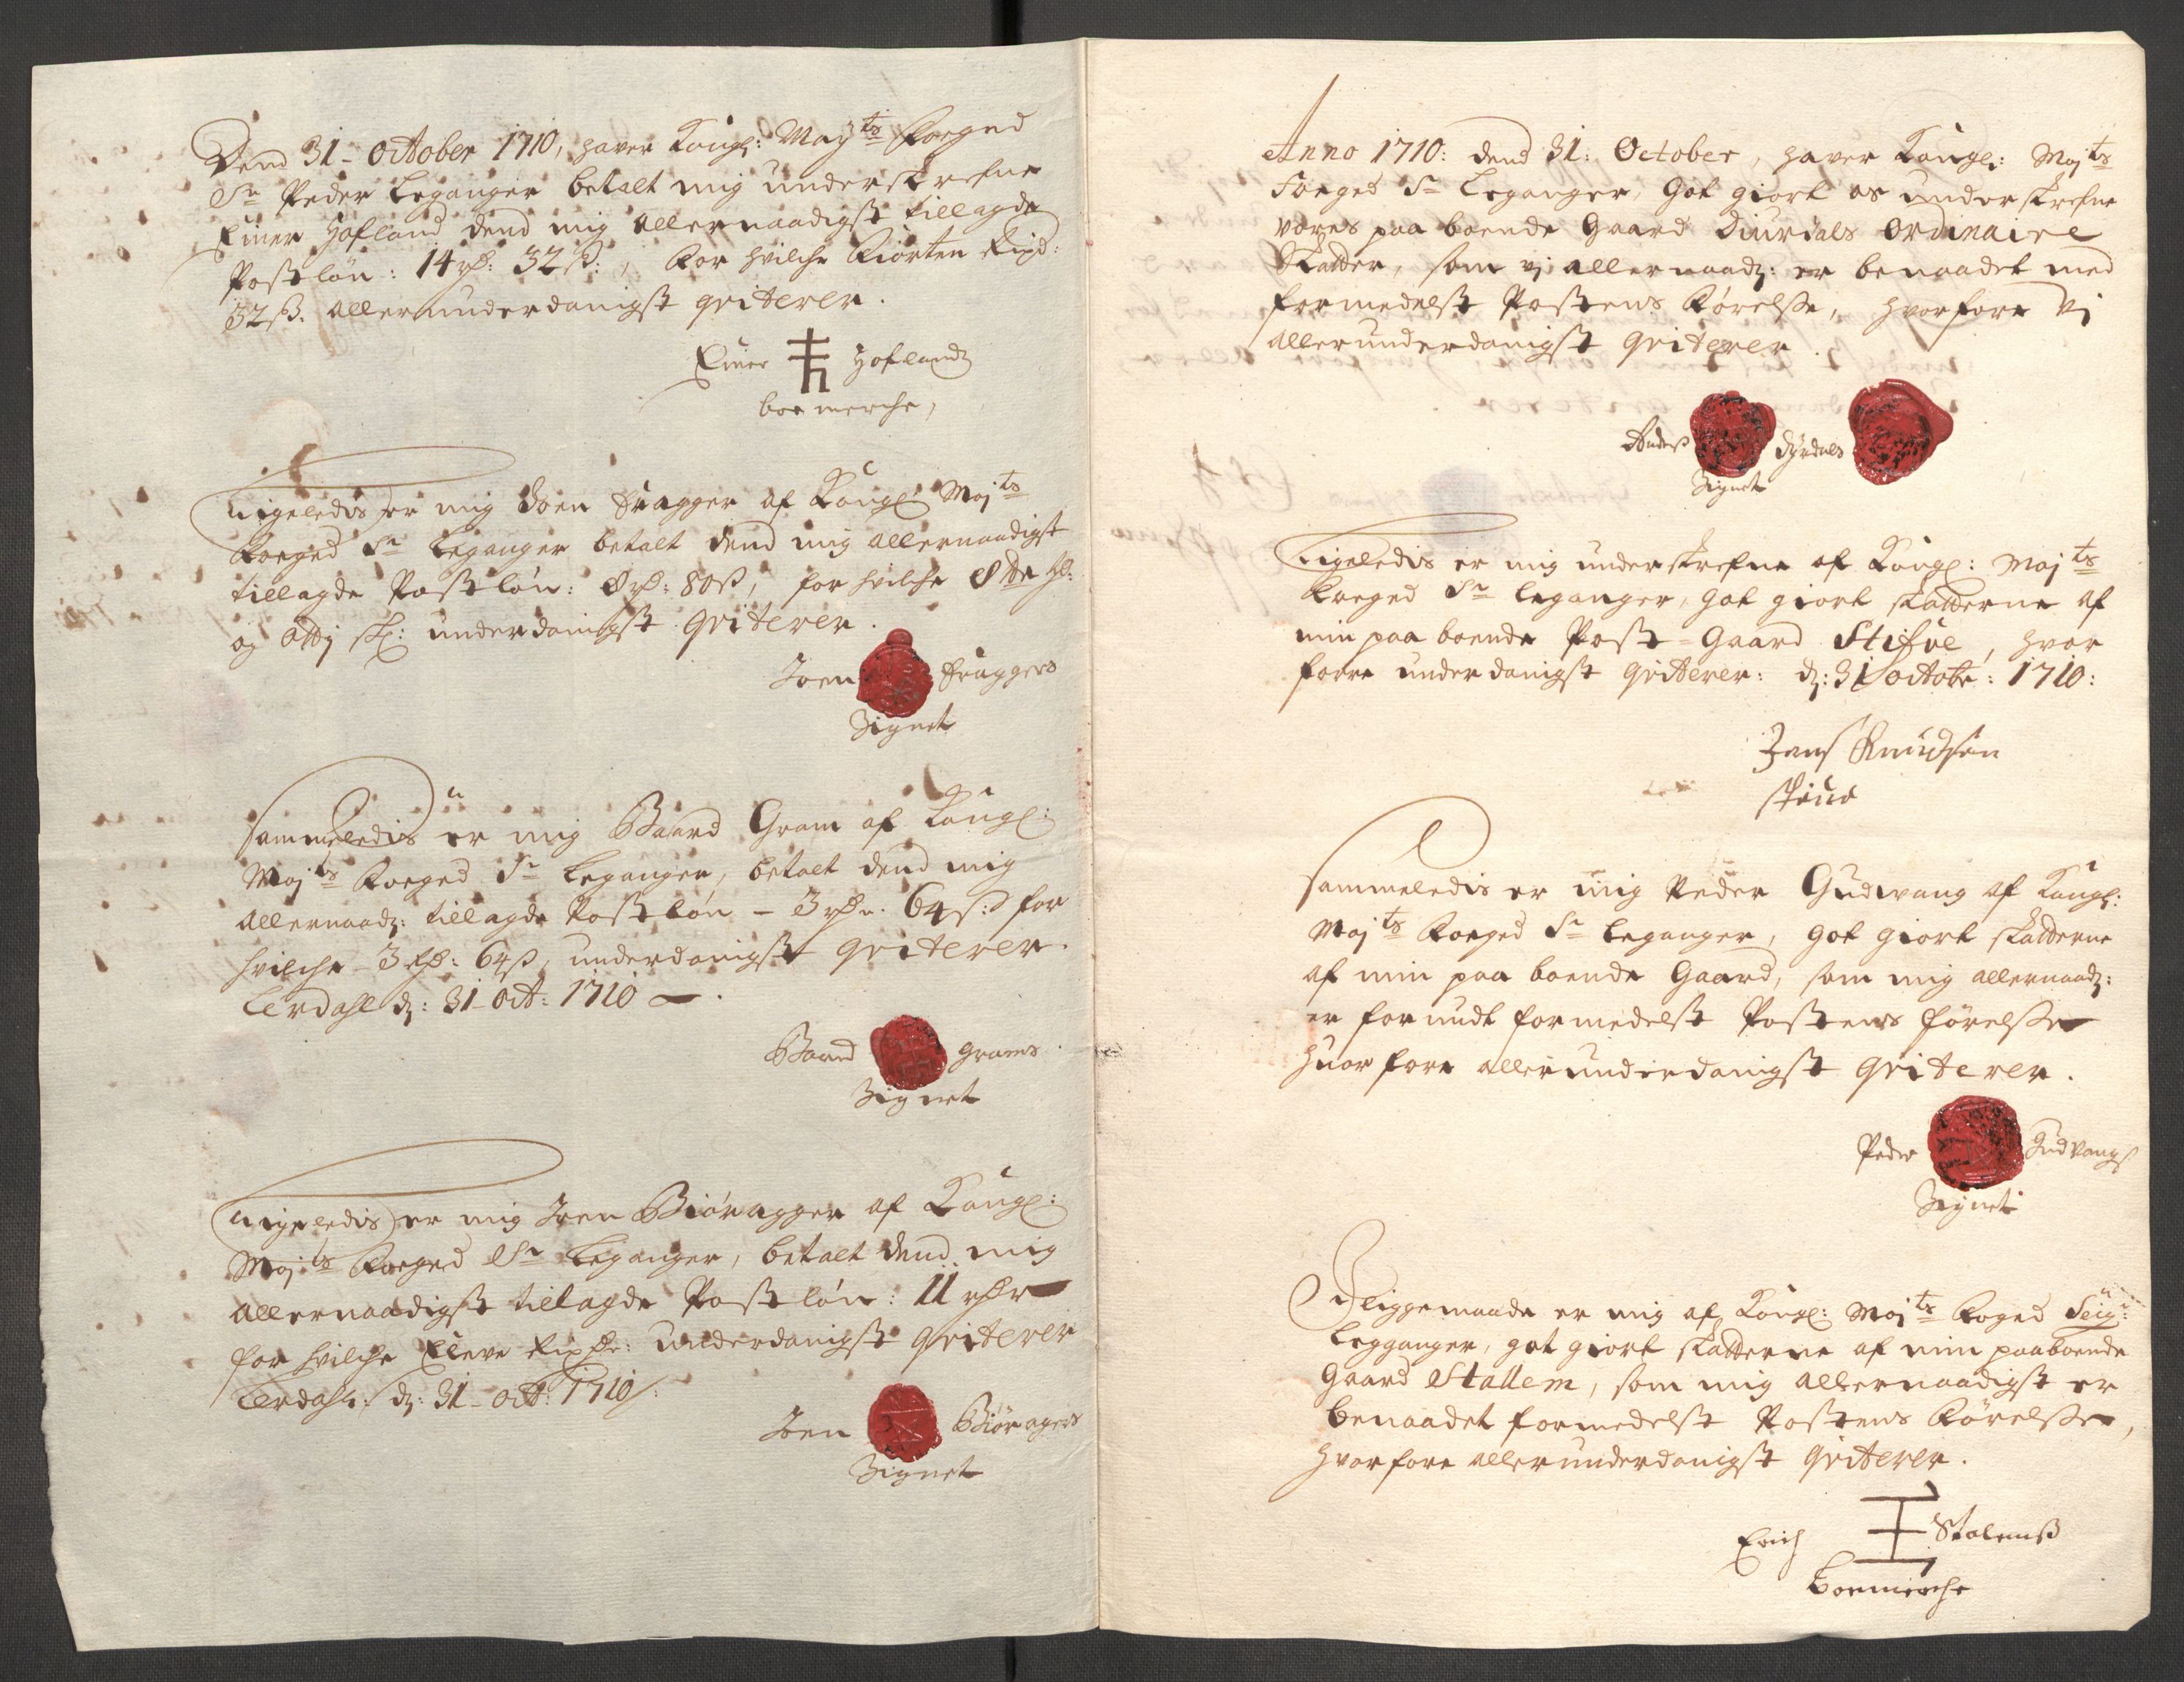 Dend 31- October 1710, haver Kongl: Mayts Foeged
Sr Peder Leganger betalt mig underskrefne
Einer Hofland dend mig allernaadigst tillagde
Postløn: 14 rd: 32 s:, For hvilche Fiorten Rixd:
32 s. allerunderdanigst qviterer.
Einer Hoflands
boe merche,
Ligeledis er mig Joen Fragger af Kongl: Majts
Foeged Sr Leganger betalt dend mig allernaadigst
tillagde Postløn: 8 rd: 80 s, for hvilche 8te
og otty sk: underdanigst qviterer.
Joen Fraggers
Signet
Sammeledis er mig Baard Gram af Kongl:
Majts Foeged Sr Leganger, betalt dend mig
allernaad: tillagde Postløn - 3 rdr. 64 s: for
hvilche - 3 rd: 64 s, underdanigst qviterer.
Lerdahl d: 31- Oct: 1710
Baard Grams
Signet
Ligeledis er mig Joen Biøragger af Kongl:
Majts Foeged Sr Leganger, betalt dend mig
allernaadigst tillagde Postløn: 11 rdr
for hvilche Eleve Rixdr: underdanigst qviterer
Lerdahl: d: 31- Oct: 1710
Joen Biøragers
Signet
Anno 1710: dend 31: October, haver Kongl: Majts
Foeget Sr Leganger, Got giort os underskrefne
vores paa boende Gaard Diurdals Ordinaire
Skatter, som vi allernaad: er benaadet med
formedelst Postens Førelse, hvorfore vi
allerunderdanigst qviterer.
Anders Dyrdals
Signet
Ligeledis er mig underskrefne af Kongl: Majts
Foeged Sr Leganger, got giort skatterne af
min paa boende Post-Gaard Stifve, hvor
fore underdanigst qviterer: d: 31 Octobr: 1710:
Jens Knudsen
Sammeledis er mig Peder Gudwang af Kongl:
Majts Foeged Sr Leganger, got giort skatterne
af min paa boende Gaard, som mig allernaad:
er forundt formedelst Postens førelse
hvorfore allerunderdanigst qviterer.
Peder Gudvangs
Signet
Iliggemaade er mig af Kongl: Majts Foged Seigr:
Legganger, got giort skatterne af min paaboende
Gaard Stallem, som mig allernaadigst er
benaadet formedelst Postens Førelse,
hvorfore allerunderdanigst qviterer.
Erich Stalemß
Boemerche